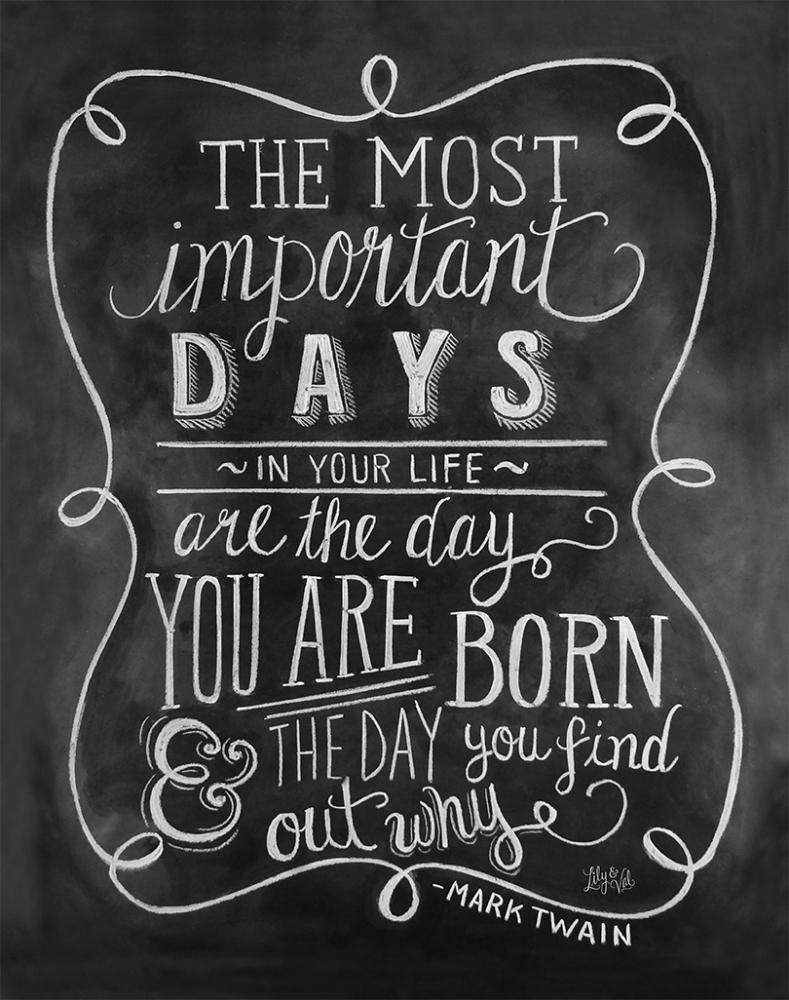 THE MOST
important
DAYS
~IN YOUR LIFE~
are the day
YOU ARE BORN
& THE DAY you find
out why
Lily & Val
-MARK TWAIN